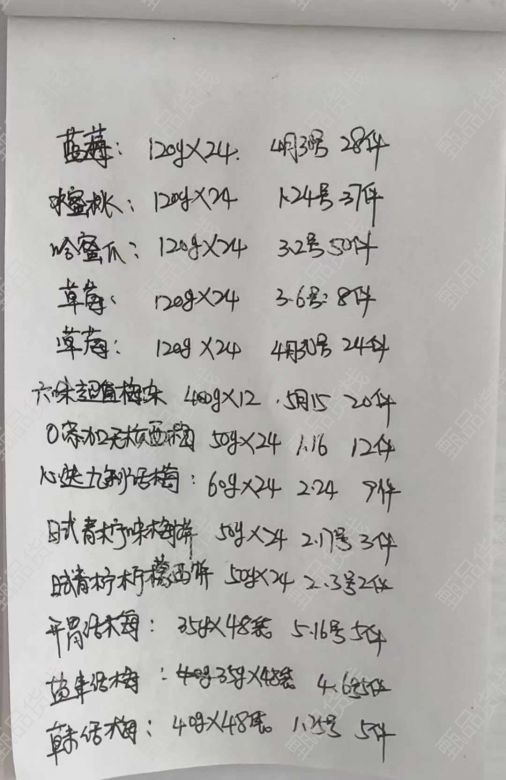 蓝莓: 120g×24. 4月30号 28件
水蜜桃: 120g×24 1.24号 37件
哈蜜瓜: 120g×24 3.2号 50件
草莓: 120g×24 3.6号: 8件
草莓: 120g×24 4月30号 24件
六味超值梅 400g×12 .5月15 20件
0添加无核西梅 50g×24 1.16 12件
九制话梅: 60g×24 2.24 9件
日式青柠味梅饼 50g×24 2.17号 3件
日式青柠柠檬西饼 50g×24 2.3号 2件
开胃话梅: 35g×48袋 5.16号 5件
盐津话梅: 35g×48袋 4.6号5件
话梅: 40g×48袋. 1.25号 5件
甄品货栈